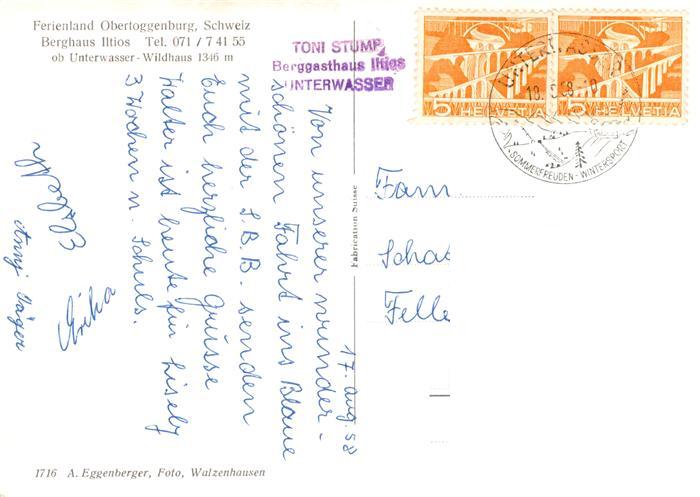 Ferienland Obertoggenburg, Schweiz
Berghaus Iltios Tel. 071 / 7 41 55
ob Unterwasser - Wildhaus 1346 m
TONI STUMP
Berggasthaus Iltios
UNTERWASSER
5 HELVETIA
5 HELVETIA
18.
58
SOMMERFREUDEN - WINTERSPORT
17. Aug. 58
Von unserer wunder-
schönen Fahrt ins Blaue
mit der S.B.B. senden
Euch herzliche Grüsse
Walter ist heute für
3 Wochen n. Schuls.
Erika
Anny Jäger
Fam
Scha
Felle
Fabrication Suisse
1716 A. Eggenberger, Foto, Walzenhausen